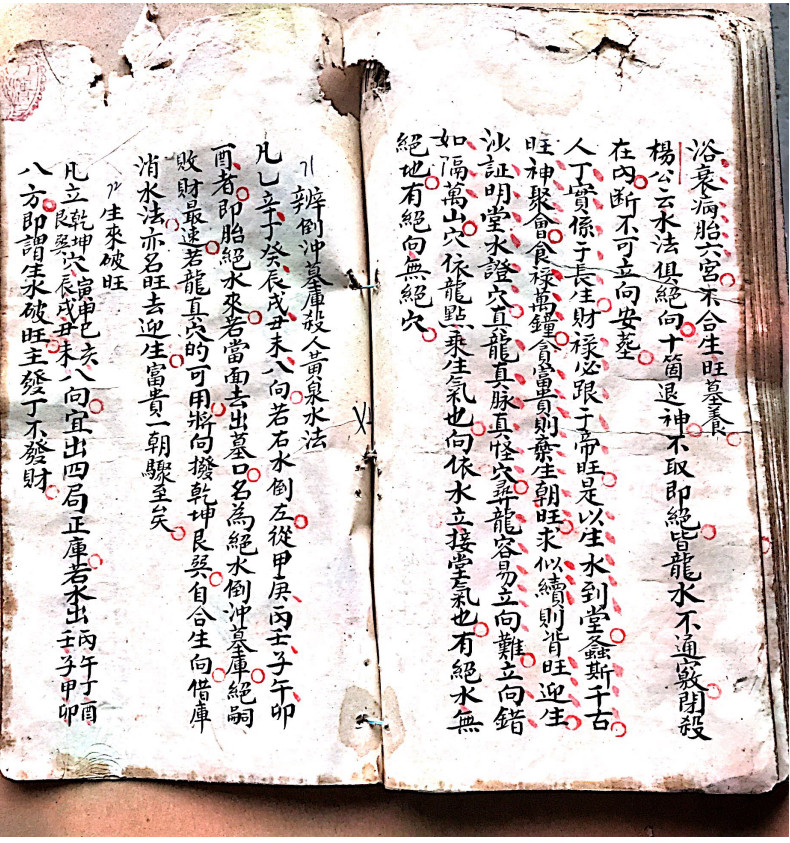 浴衰病胎六宮不合生旺墓養
楊公云水法俱絕向十箇退神不取即絕皆龍水不通竅閉殺
在內斷不可立向安塟
人丁實係于長生財祿必跟于帝旺是以生水到堂螽斯千古
旺神聚會食祿萬鐘貪富貴則棄生朝旺求似續則背旺迎生
沙証明堂水證穴真龍真脉真怪穴尋龍容易立向難立向錯
如隔萬山穴依龍點乘生氣也向依水立接堂氣也有絕水無
絕地有絕向無絕穴
辨倒冲墓庫殺人黃泉水法
凡乙辛丁癸辰戌丑未八向若右水倒左從甲庚丙壬子午卯
酉者即胎絕水來若當面去出墓口名為絕水倒冲墓庫絕嗣
敗財最速若龍真穴的可用將向撥乾坤艮巽自合生向借庫
消水法亦名旺去迎生富貴一朝驟至矣
生來破旺
凡立乾坤艮巽穴寅申巳亥辰戌丑未八向宜出四局正庫若水出丙午丁酉壬子甲卯
八方即謂生水破旺主發丁不發財